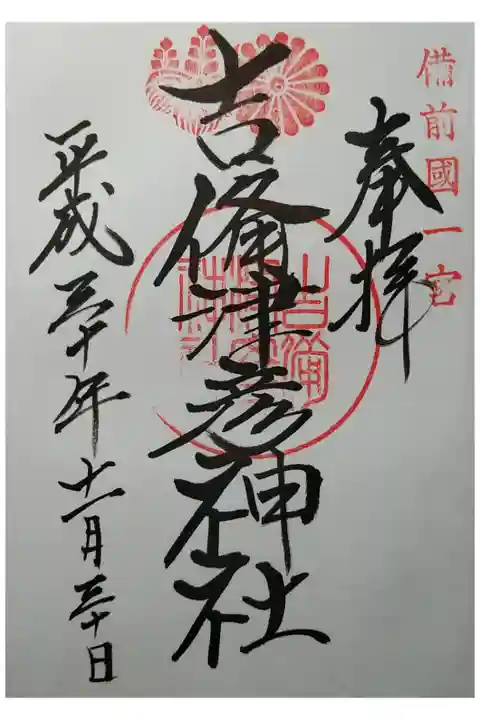 備前國一宮
奉拝
吉備津彦神社
平成三十年十一月三十日